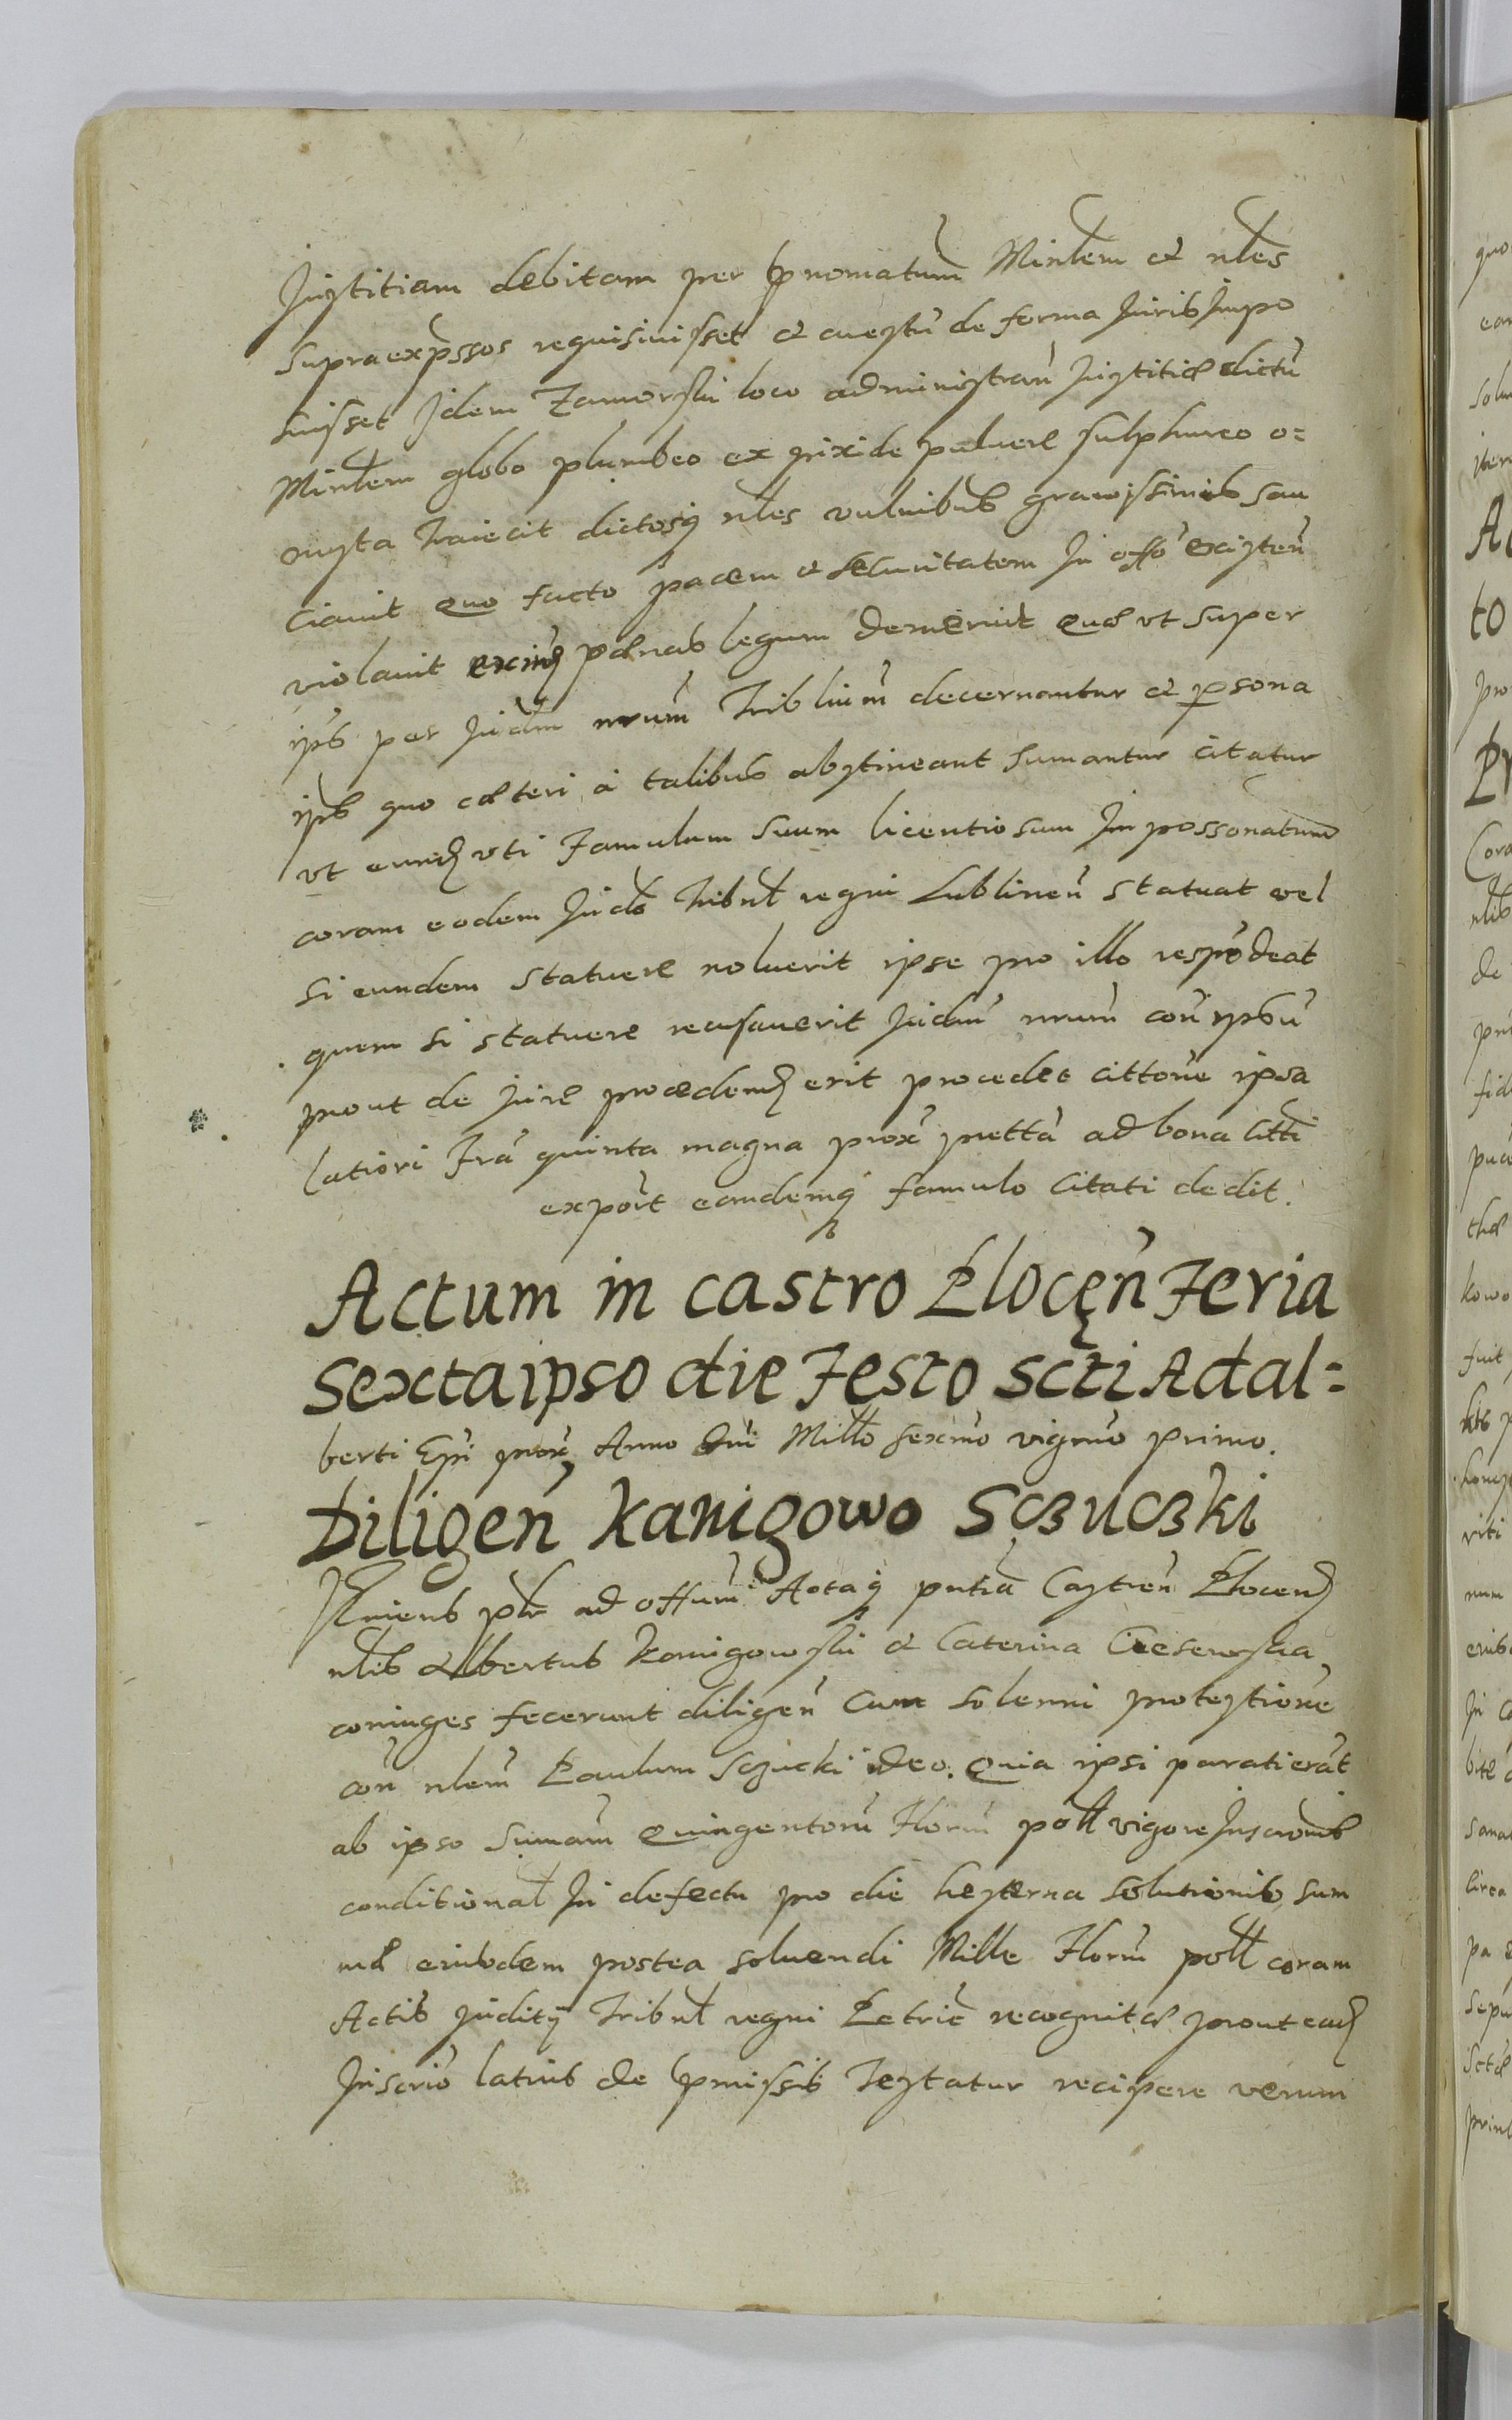 Justitiam debitam per prnomatum Minlem et nles
supraexpssos requisiuisset et arestu de forma Juris Impo
suisset Idem Zamorski loco administran Justitiæ dictu
Minlem globo plumbeo ex pixide puluere sulphureo o=
nusta traiecit dictosq nles vulnibus grauissimis sau
ciauit Quo facto pacem et securitatem In offo existen
violauit poenas legum demeruit Quæ vt super
ips per Judm nrum Triblium decernantur et psona
ips quo cæteri a talibus abstineant sumantur citatur
vt eund vti Famulum suum licentiosum Impossonatum
coram eodem Judo Tribul regni Lublinen statuat vel
si eundem statuere noluerit ipse pro illo respodeat
quem si statuere recusauerit Judm nrum con ipsu
prout de Jure procedend erit procedet cittone ipsa
latiori Fra quinta magna prox prætta ad bona citti
export eandemq famulo Citati dedit.
Actum in castro Plocen Feria
sexta ipso die Festo scti Adal=
berti Epi prox Anno Dni Millo sexmo vigmo primo.
Diligen Kanigowo Sczuczki
Veniens ptr ad offum Actaq pntia Castren Plocen
nlis Albertus Kanigowski et Caterina
coniuges fecerunt diligen Cum solenni protestione
con nlem Paulum Sczucki ideo. Quia ipsi parati erat
ab ipso Sumam Quingentoru Floru poll vigore Inscronis
conditional In defectu pro die hesterna solutionis sum
mæ eiusdem postea soluendi Mille Floru poll coram
Actis Juditij Tribul regni Petric recognitæ prout ead
Inscrio latius de pmissis Testatur recipere verum